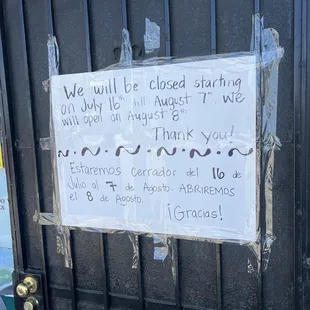 We will be closed starting
on July 16th till August 7th We
will open on August 8th
Thank you!
Estaremos cerrador del 16 de
Julio al 7 de Agosto. ABRIREMOS
el 8 de Agosto.
¡Gracias!